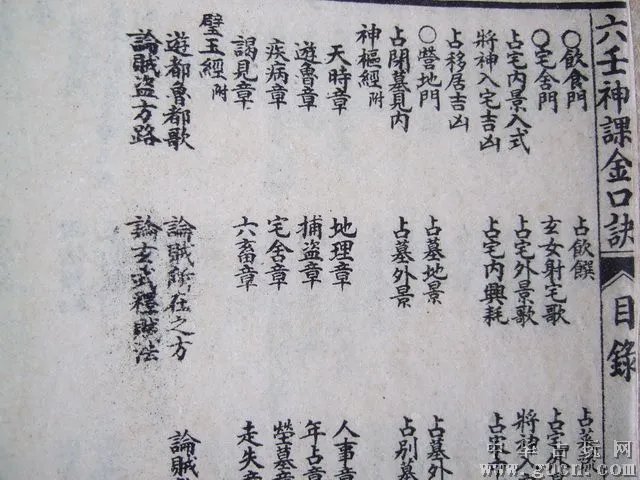 六壬神課金口訣 目錄
○飲食門 占飲饌
○宅舍門 玄女射宅歌 占宅
占宅內景入式 占宅外景歌 將神
將神入宅吉凶 占宅內興耗 占
占移居吉凶
○營地門 占墓地景 占墓外
占開墓見內 占墓外景 占別墓
神樞經附
天時章 地理章 人事章
遊魯章 捕盜章 年占章
疾病章 宅舍章 塋墓章
謁見章 六畜章 走失章
璧玉經附
遊都魯都歌 論賊所在之方 論賊
論賊盜方路 論玄武釋賊法
中華古玩网
www.gucn.com